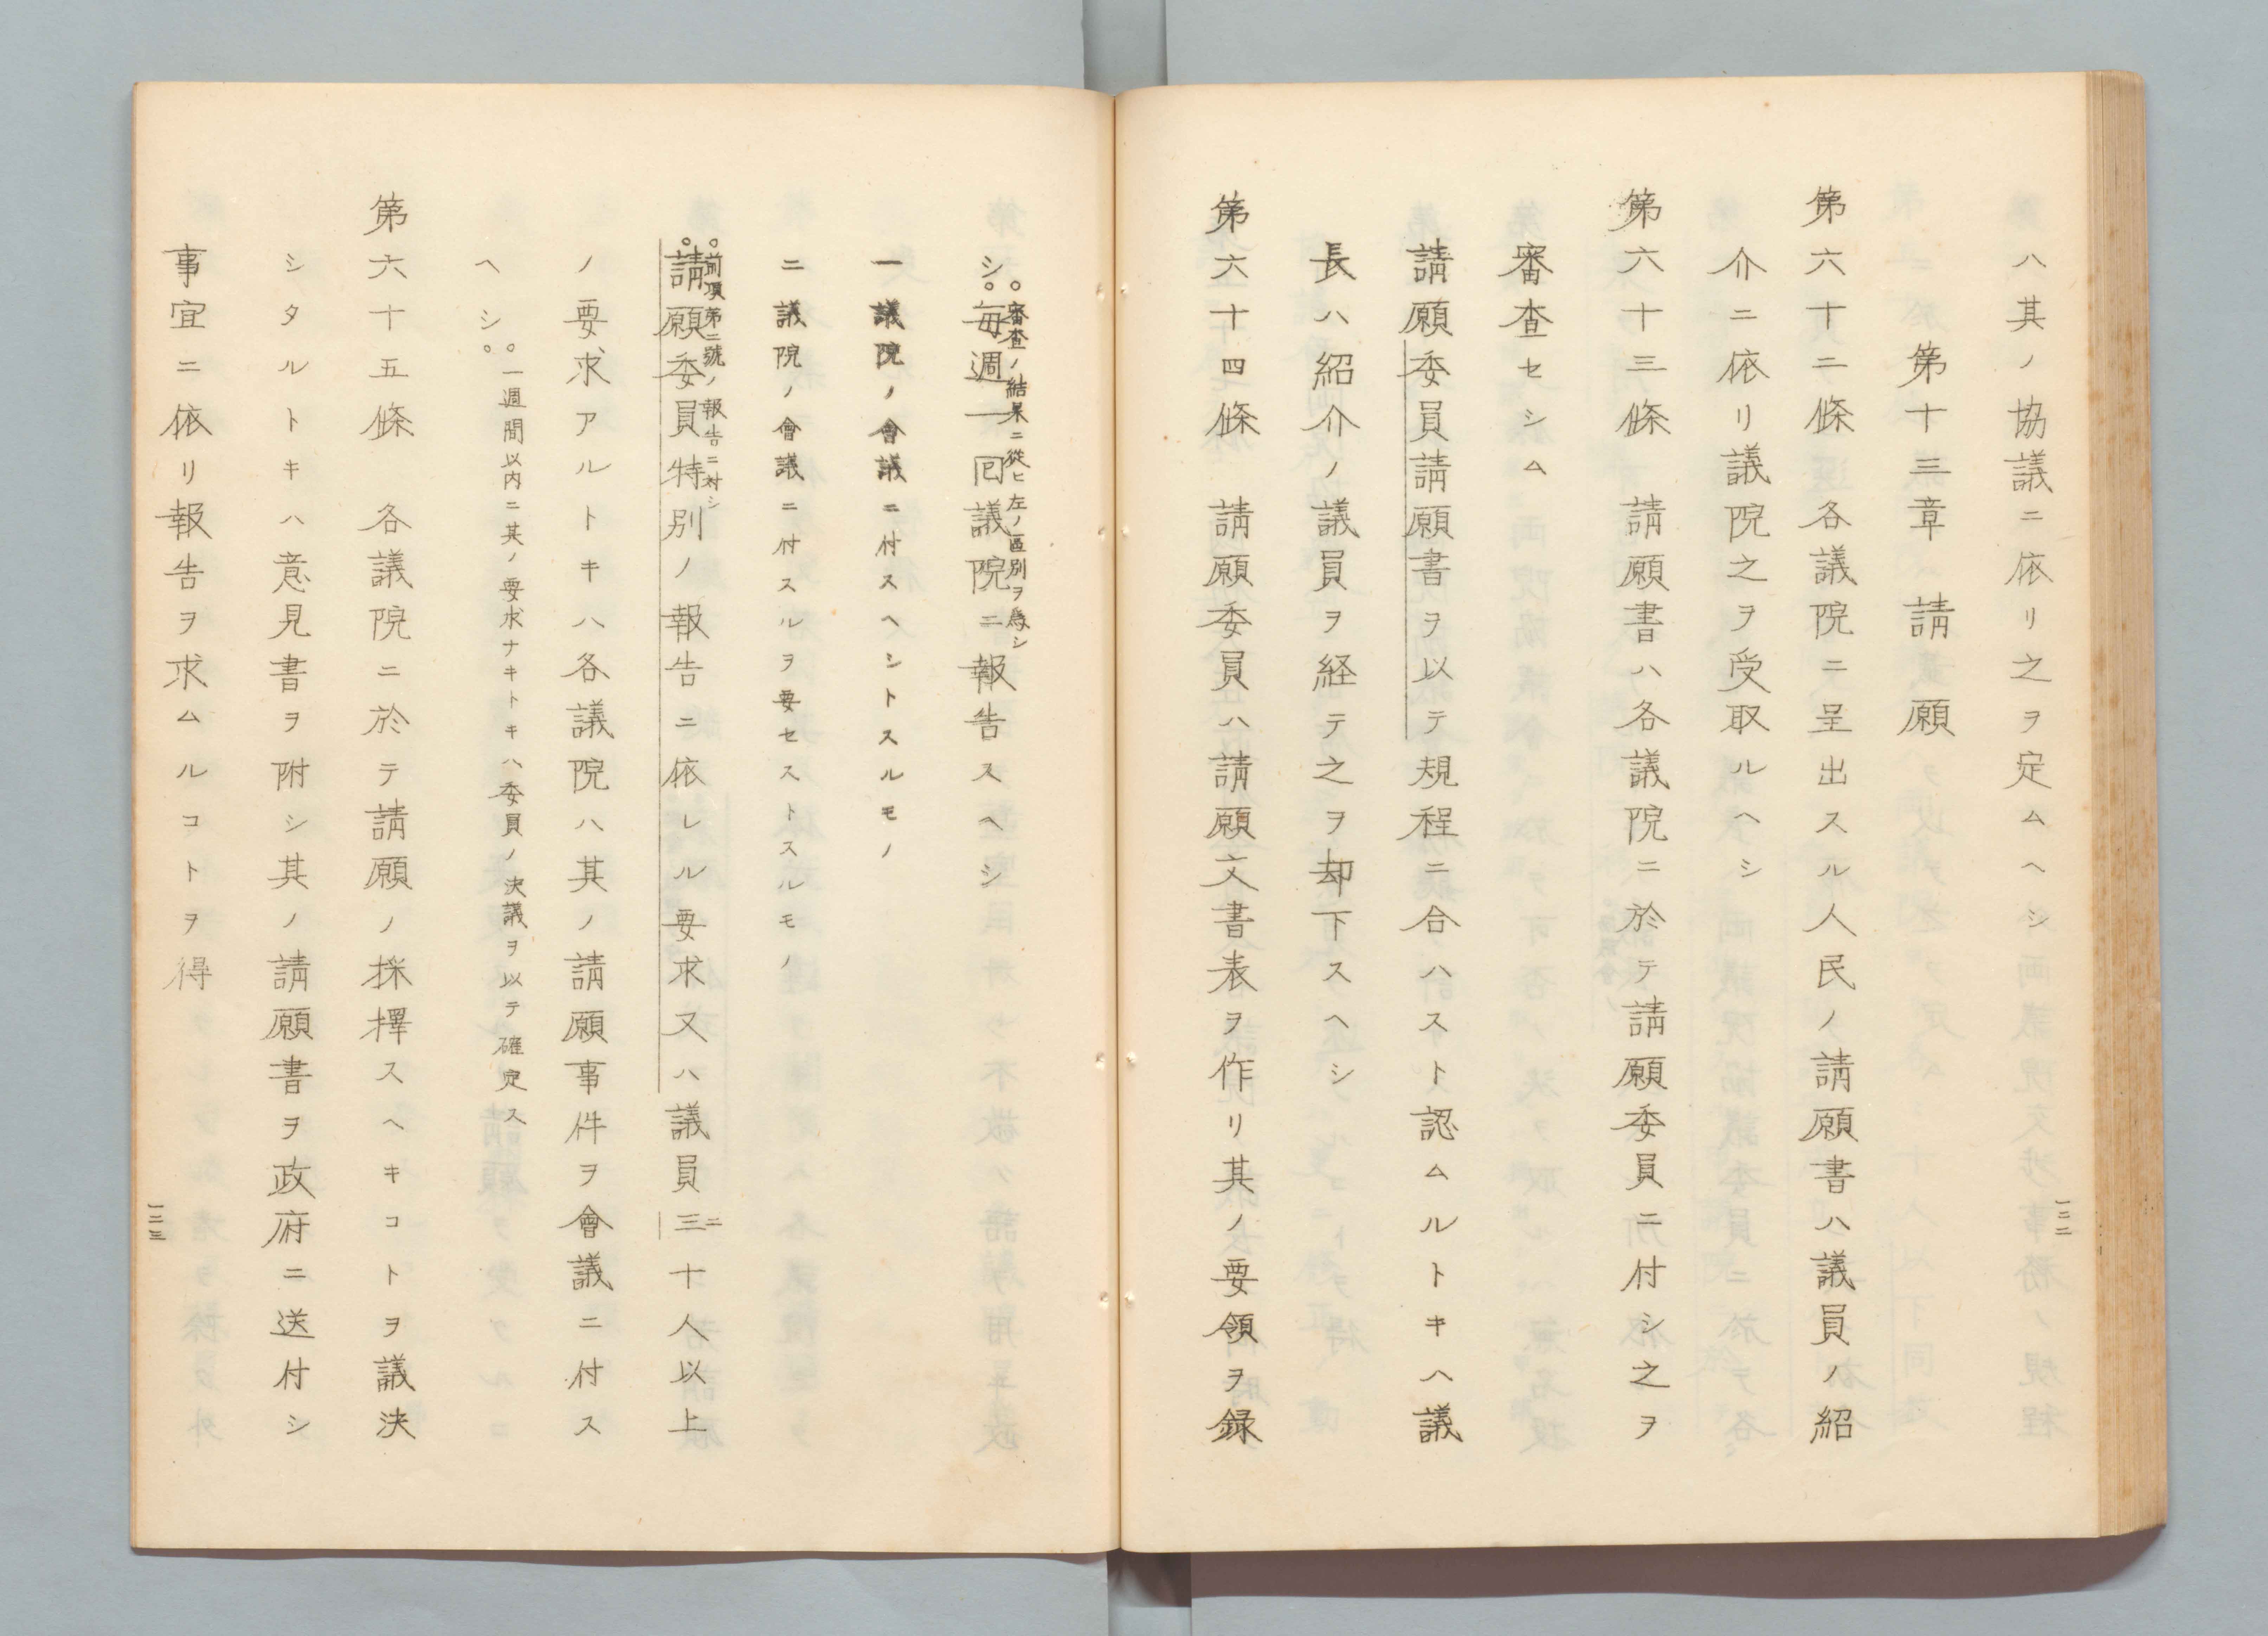 ハ其ノ協議ニ依リ之ヲ定ムヘシ
第十三章 請願
第六十二條 各議院ニ呈出スル人民ノ請願書ハ議員ノ紹
介ニ依リ議院之ヲ受取ルヘシ
第六十三條 請願書ハ各議院ニ於テ請願委員ニ付シ之ヲ
審査セシム
請願委員請願書ヲ以テ規程ニ合ハスト認ムルトキハ議
長ハ紹介ノ議員ヲ経テ之ヲ却下スヘシ
第六十四條 請願委員ハ請願文書表ヲ作リ其ノ要領ヲ録
一三二
。審査ノ結果ニ從ヒ左ノ區別ヲ爲シ
シ。毎週一回議院ニ報告スヘシ
一議院ノ會議ニ付スヘシトスルモノ
二議院ノ會議ニ付スルヲ要セストスルモノ
。前項第二號ノ報告ニ対シ
。請願委員特別ノ報告ニ依レル要求又ハ議員三十人以上
二
ノ要求アルトキハ各議院ハ其ノ請願事件ヲ會議ニ付ス
ヘシ。
。一週間以内ニ其ノ要求ナキトキハ委員ノ決議ヲ以テ確定ス
第六十五條 各議院ニ於テ請願ノ採擇スヘキコトヲ議決
シタルトキハ意見書ヲ附シ其ノ請願書ヲ政府ニ送付シ
事宜ニ依リ報告ヲ求ムルコトヲ得
一三三